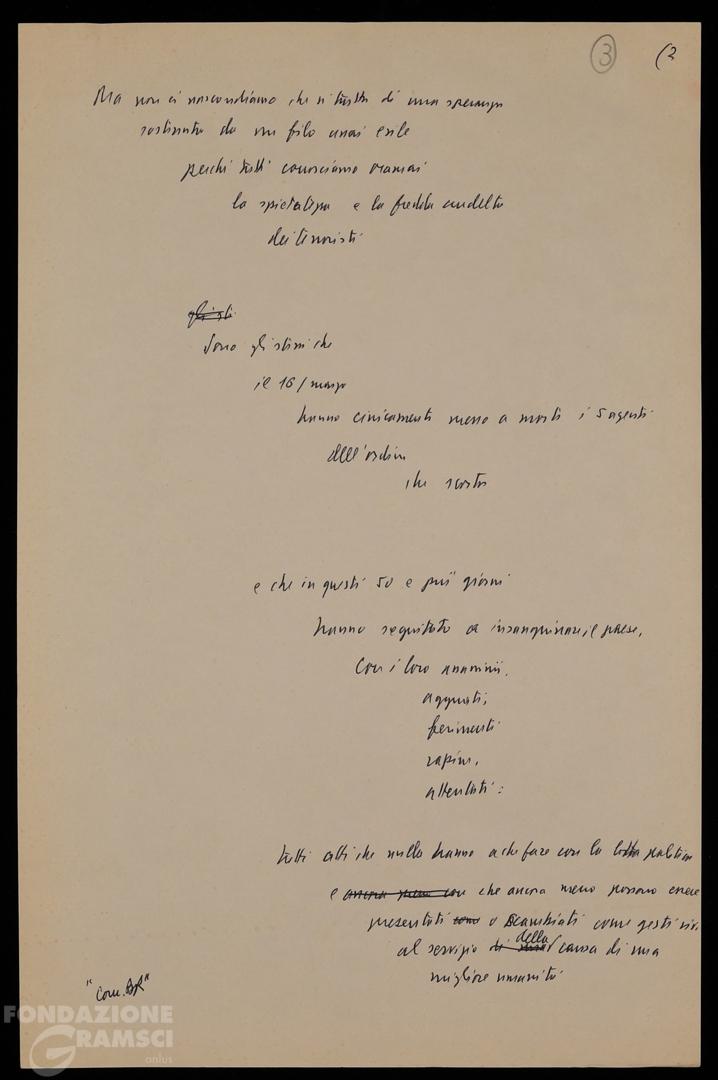 3 (2
Ma non ci nascondiamo che si tratta di una speranza
sostenuta da un filo assai esile
perché tutti conosciamo oramai
la spietatezza e la fredda crudeltà
dei terroristi
gli sti
Sono gli stessi che
il 16/marzo
hanno cinicamente messo a morte i 5 agenti
dell'ordine
che scorta
e che in questi 50 e più giorni
hanno seguitato a insanguinare il paese,
con i loro assassinii,
agguati,
ferimenti
rapine,
attentati:
tutti atti che nulla hanno a che fare con la lotta politica
e ancora meno con che ancora meno possono essere
presentati come o scambiati come gesti
al servizio di della causa di una
migliore umanità
"Com. BR"
FONDAZIONE
GRAMSCI
onlus